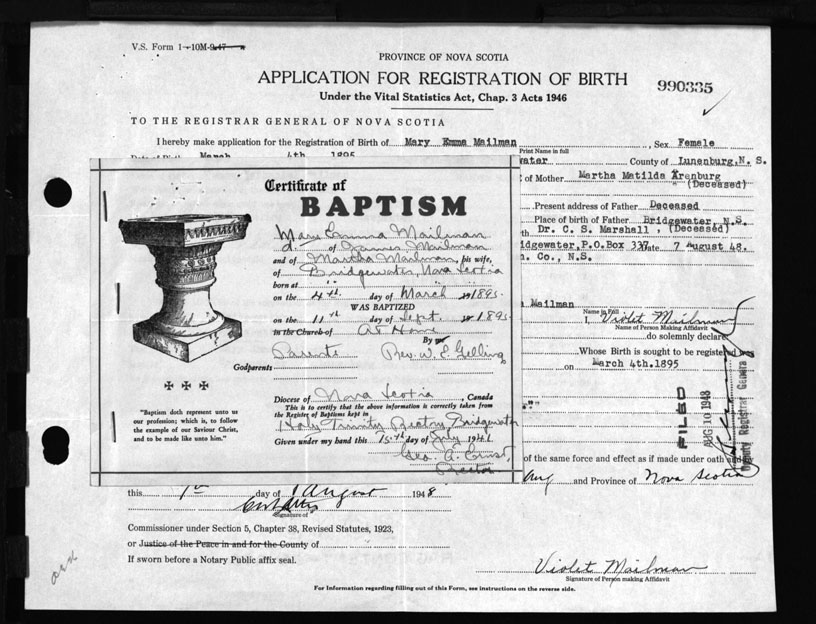 V.S. Form 1-10M-9-47
PROVINCE OF NOVA SCOTIA
APPLICATION FOR REGISTRATION OF BIRTH
990335
Under the Vital Statistics Act, Chap. 3 Acts 1946
TO THE REGISTRAR GENERAL OF NOVA SCOTIA
I hereby make application for the Registration of Birth of Mary Emma Mailman, Sex Female
Print Name in full
March 4th. 1895
water County of Lunenburg, N. S.
of Mother Martha Matilda Arenburg
" (Deceased)
Present address of Father Deceased
Place of birth of Father Bridgewater, N.S.
Dr. C. S. Marshall, (Deceased)
idgewater, P.O. Box 337 Date 7 August 48.
n. Co., N.S.
Mailman
Name in Full
I, Violet Mailman
Name of Person Making Affidavit
do solemnly declare
Whose Birth is sought to be registered was
on March 4th.1895
FILED
AUG 10 1948
Deputy Registrar General
of the same force and effect as if made under oath and by
Aug and Province of Nova Scotia
Certificate of
BAPTISM
Mary Emma Mailman
d. of James Mailman
and of Martha Mailman, his wife,
of Bridgewater, Nova Scotia
born at "
on the 4th. day of March 1895.
WAS BAPTIZED
on the 11th day of Sept. 1895
in the Church of At Home
By
Parents Rev. W. E. Gelling
Godparents
Diocese of Nova Scotia, Canada
This is to certify that the above information is correctly taken from
the Register of Baptisms kept in
Holy Trinity Rectory, Bridgewater
Given under my hand this 15th day of July 1941
Geo. A. Ernst,
Rector
"Baptism doth represent unto us
our profession; which is, to follow
the example of our Saviour Christ,
and to be made like unto him."
this 7th day of August 1948
Signature of
Commissioner under Section 5, Chapter 38, Revised Statutes, 1923,
or Justice of the Peace in and for the County of
If sworn before a Notary Public affix seal.
Violet Mailman
Signature of Person making Affidavit
For Information regarding filling out of this Form, see instructions on the reverse side.